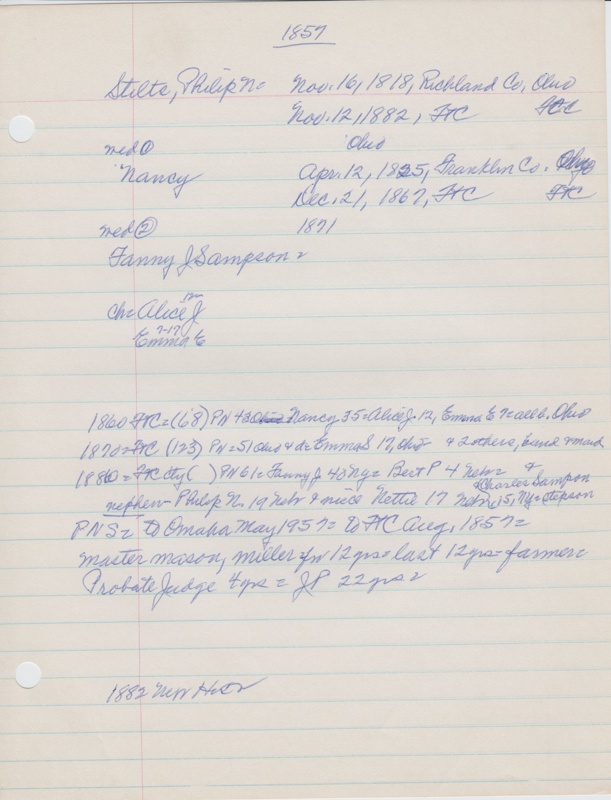 1857
Stilts, Philip N= Nov. 16, 1818, Richland Co, Ohio
Nov. 12, 1882, FtC FtCC
med ① Ohio
Nancy Apr. 12, 1825, Franklin Co. Ohio
Dec. 21, 1867, FtC FtC
med ② 1871
Fanny J Sampson =
ch= Alice J 12m
Emma E 7-17
1860 FtC= (68) PN 42 Ohio Nancy 35= Alice J. 12, Emma E 7= all b. Ohio
1870= FtC (123) PN= 51 Ohio & d= Emma S 17, Ohio & 2 others, & maid
1880= FtC cty ( ) PN 61= Fanny J 43 Ny= Bert P 4 Nebr= &
nephew- Philip N. 19 Nebr & niece Nettie 17 Nebr, & Charles Sampson 15, Ny= stepson
PNS= to Omaha May 1957= to FtC Aug. 1857=
master mason, miller for 12 yrs= last 12 yrs= farmer=
Probate Judge 4 yrs = JP 22 yrs=
1882 New